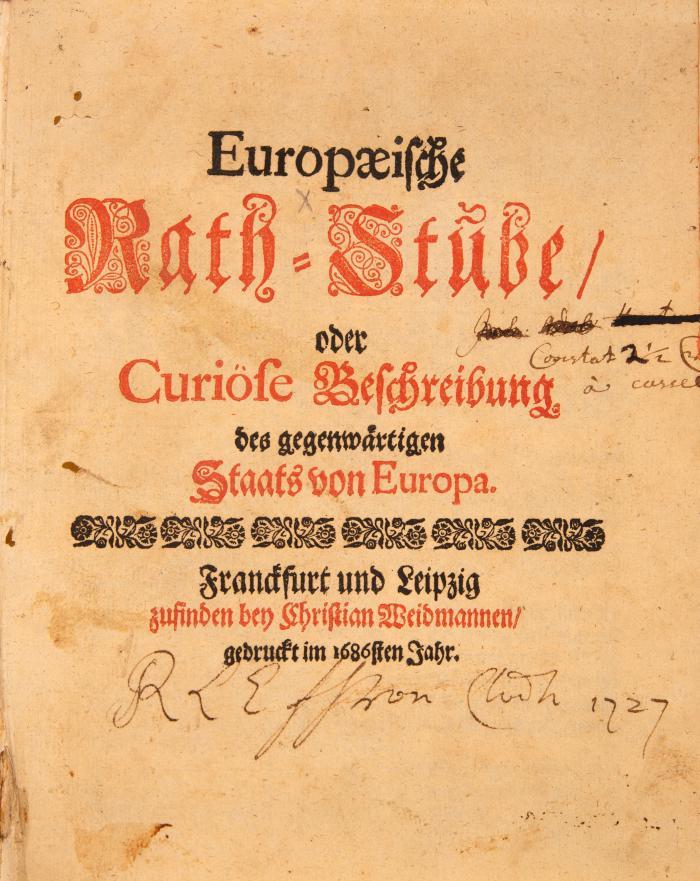 Europæiſche
Rath-Stũbe/
oder
Curiöſe Beſchreibung
des gegenwärtigen
Staats von Europa.
Franckfurt und Leipzig
zufinden bey Chriſtian Weidmannen/
gedruckt im 1686ſten Jahr.
Constat 2 1/2
à
1727